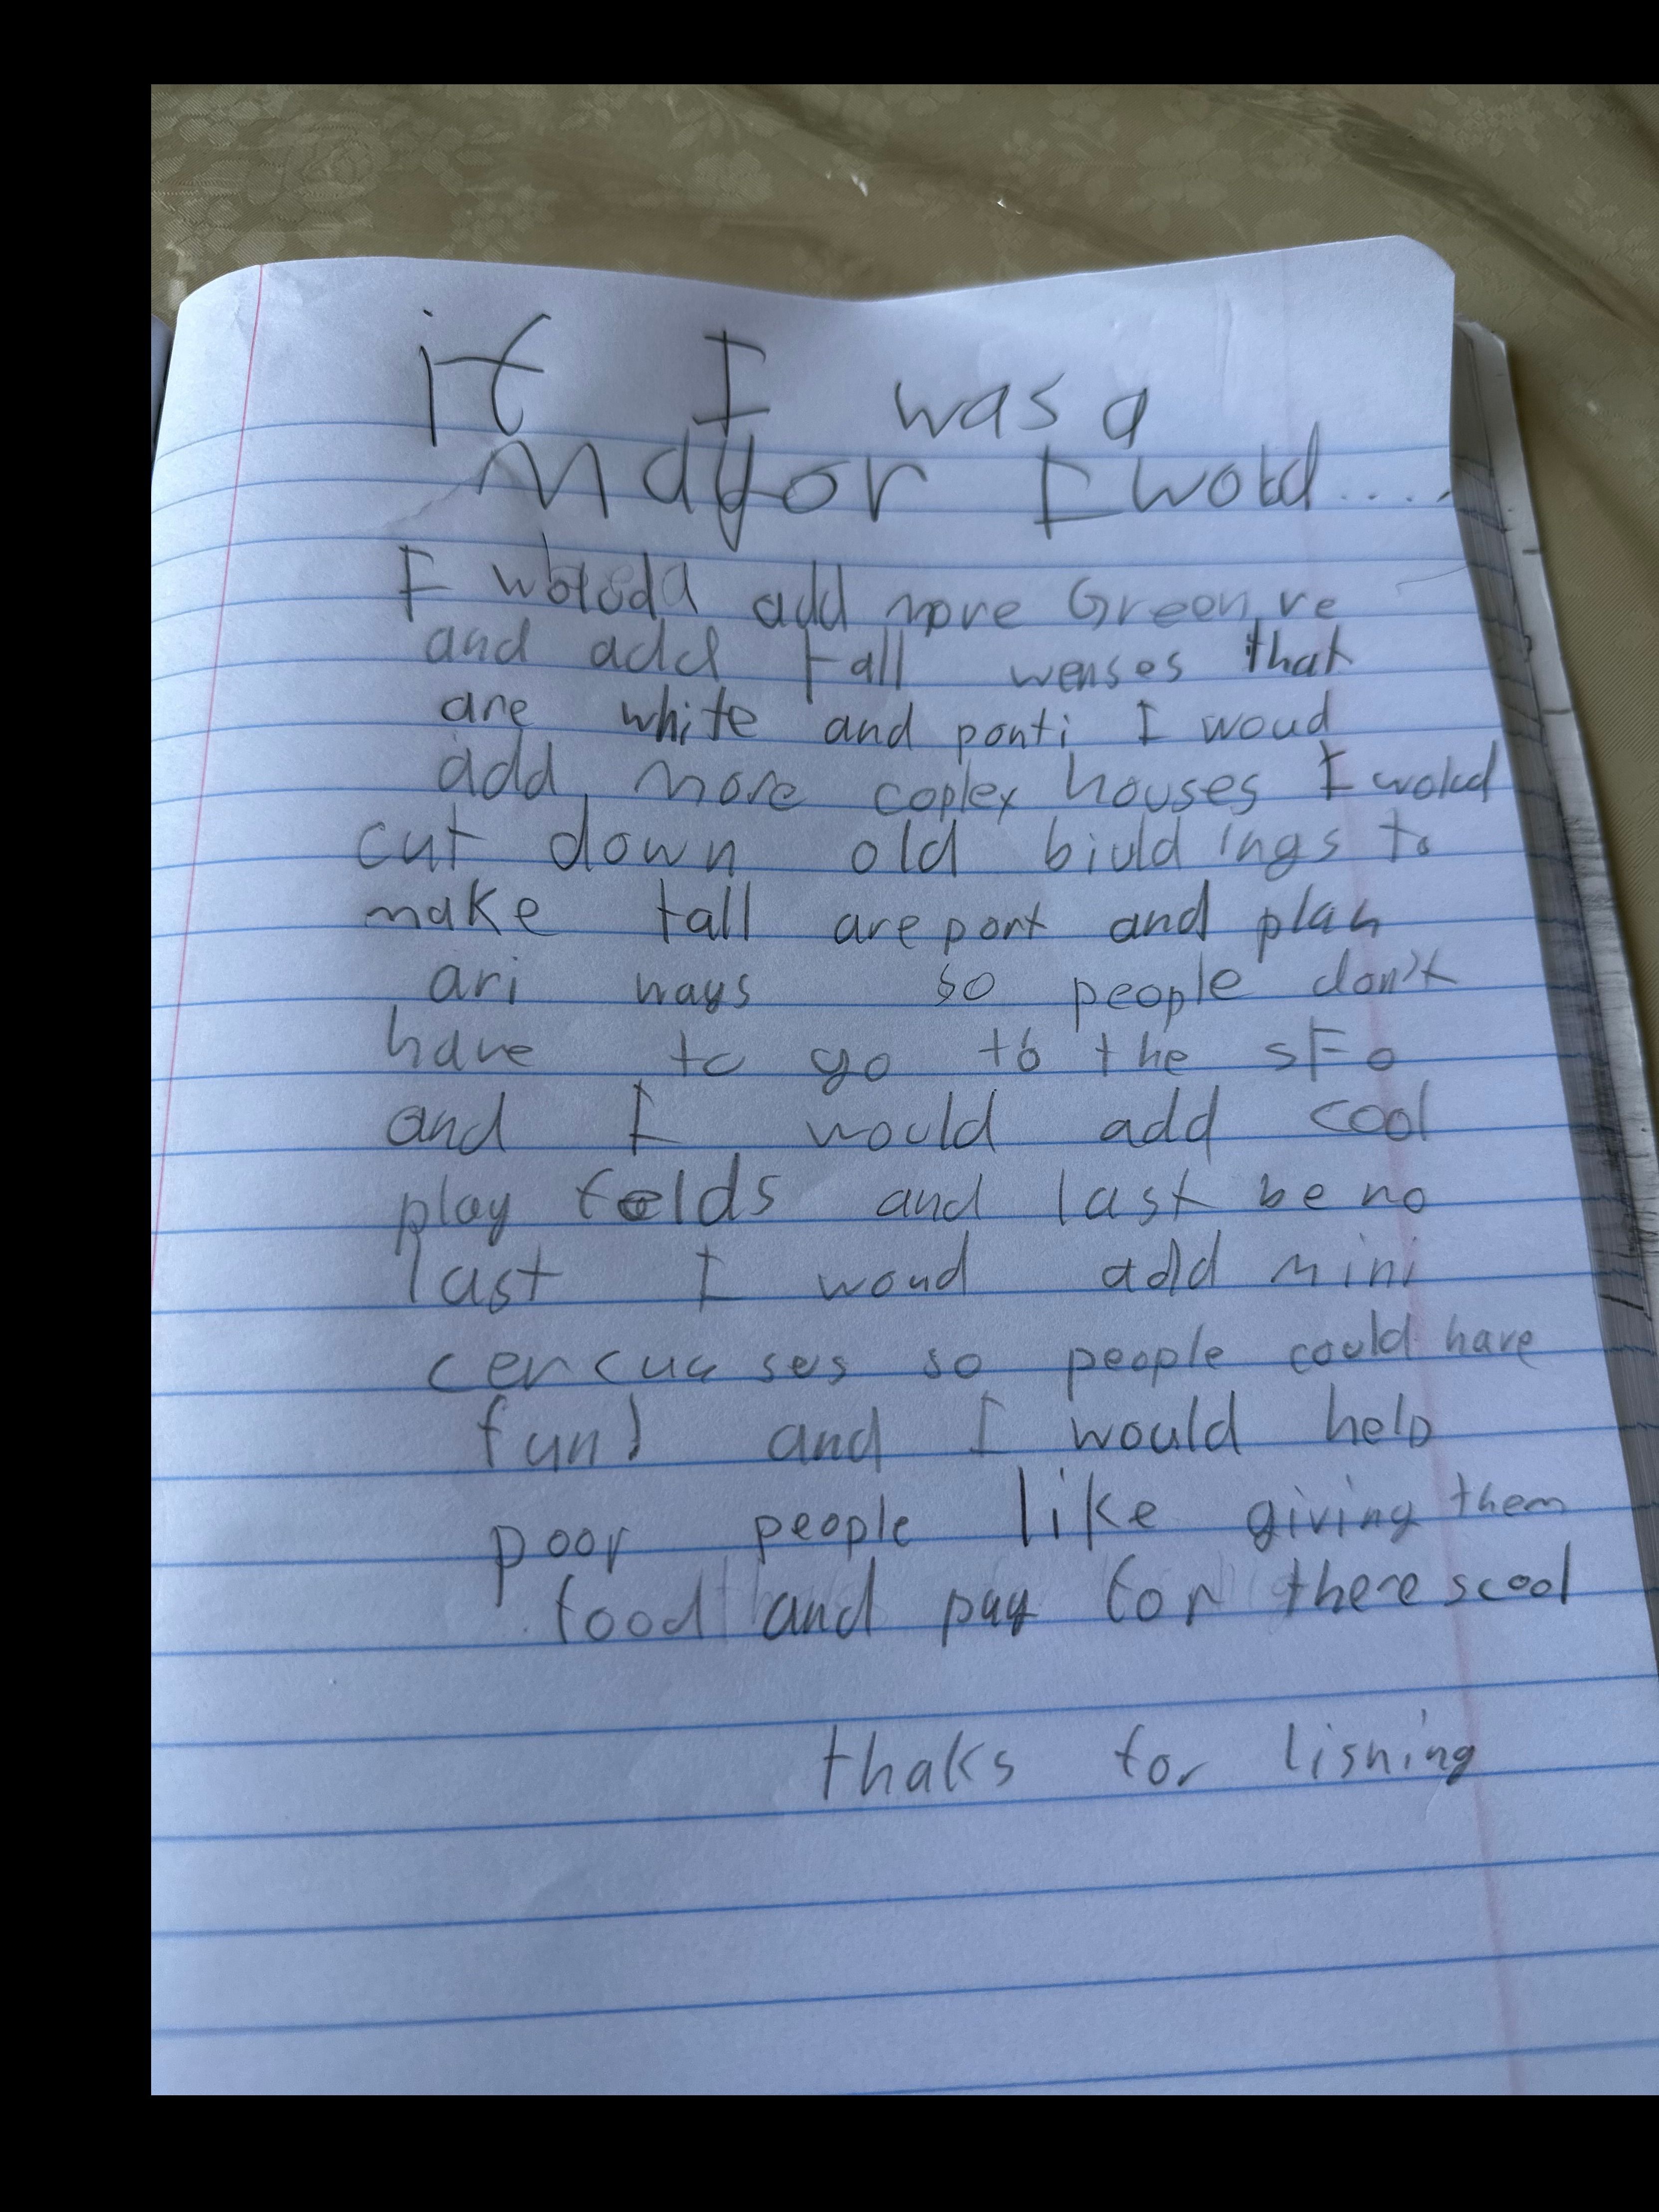 if I was a
mayor I wold....
I would add more Green re
and add tall wenses that
are white and ponti I woud
add more coplex houses I wolud
cut down old biuldings to
make tall areport and plan
ari ways so people don't
have to go to the sFo
and I would add cool
play felds and last be no
last I woud add mini
cercuases so people could have
fun! and I would help
poor people like giving them
food and pay for there scool
thaks for lisning